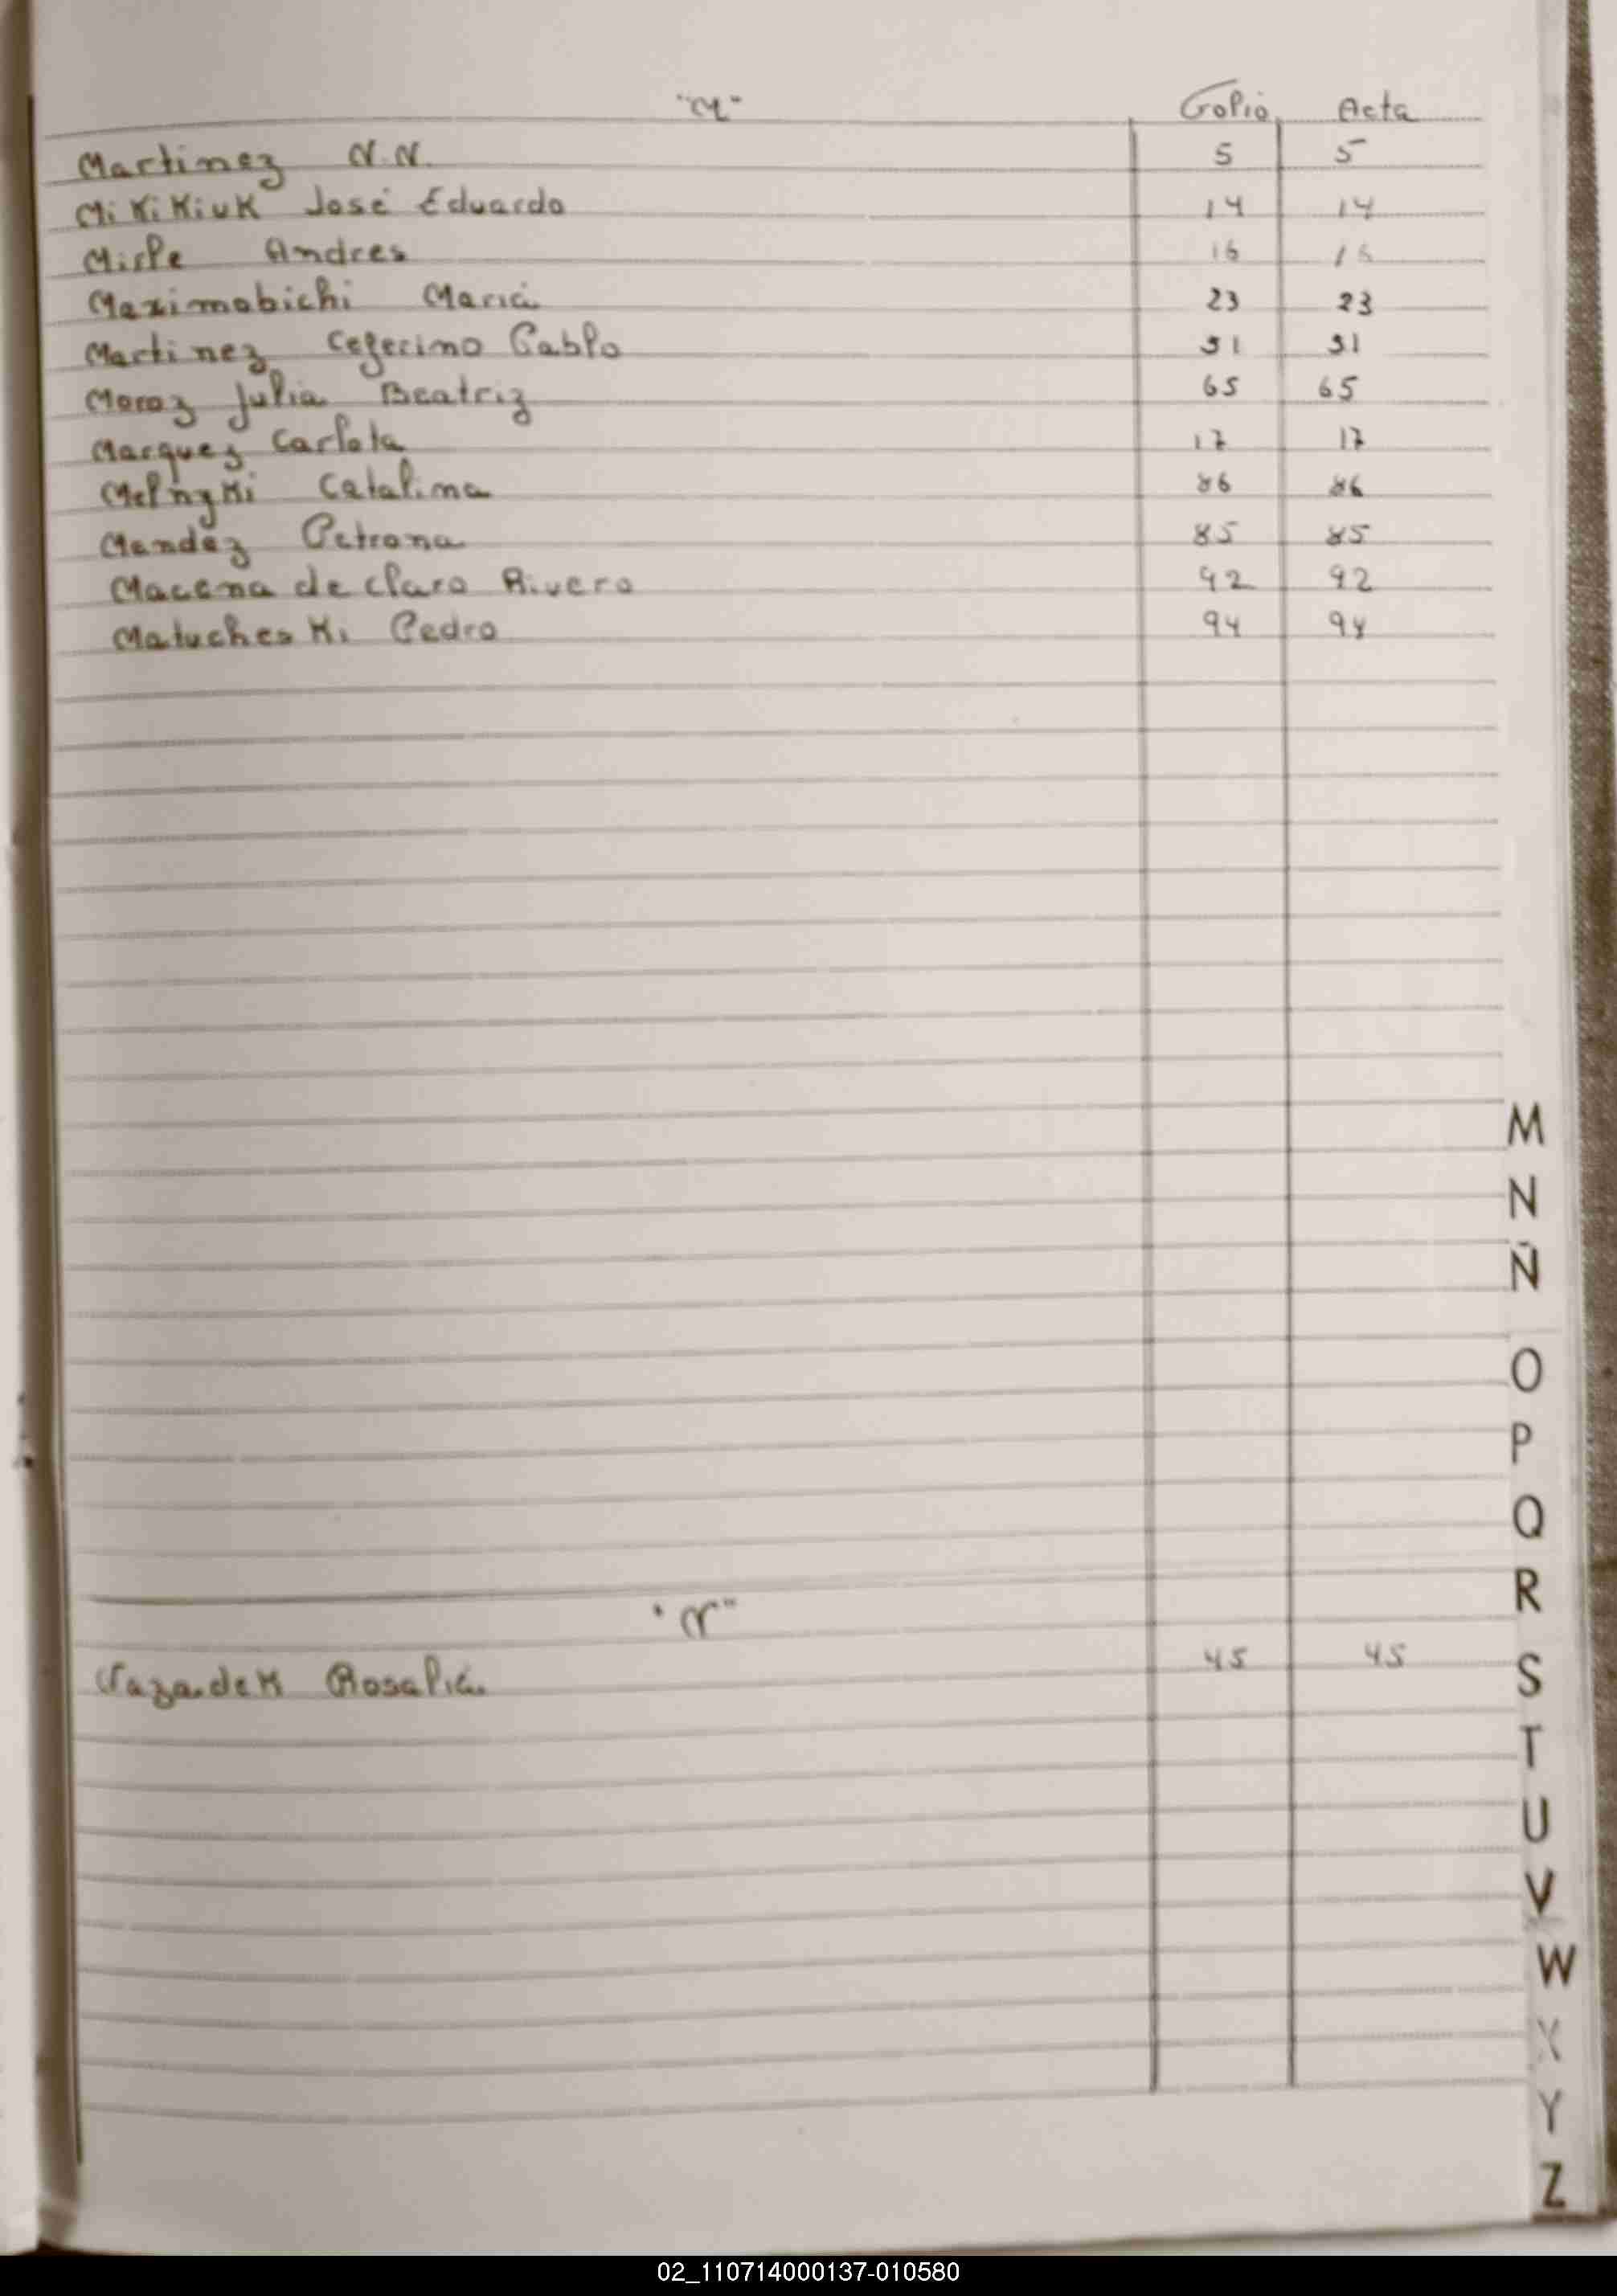 "M" Folio Acta
Martinez N.N. 5 5
MiKiKiuK José Eduardo 14 14
Misle Andres 16 16
Maximobichi Maria 23 23
Martinez Ceferino Pablo 31 31
Moroz Julia Beatriz 65 65
Marquez Carlota 17 17
Catalina 86 86
Mendez Petrona 85 85
Macena de claro Rivero 92 92
MatuchesKi Pedro 94 94
M
N
Ñ
O
P
Q
R
"N"
NazandeK Rosalia 45 45
S
T
U
V
W
X
Y
Z
02_110714000137-010580